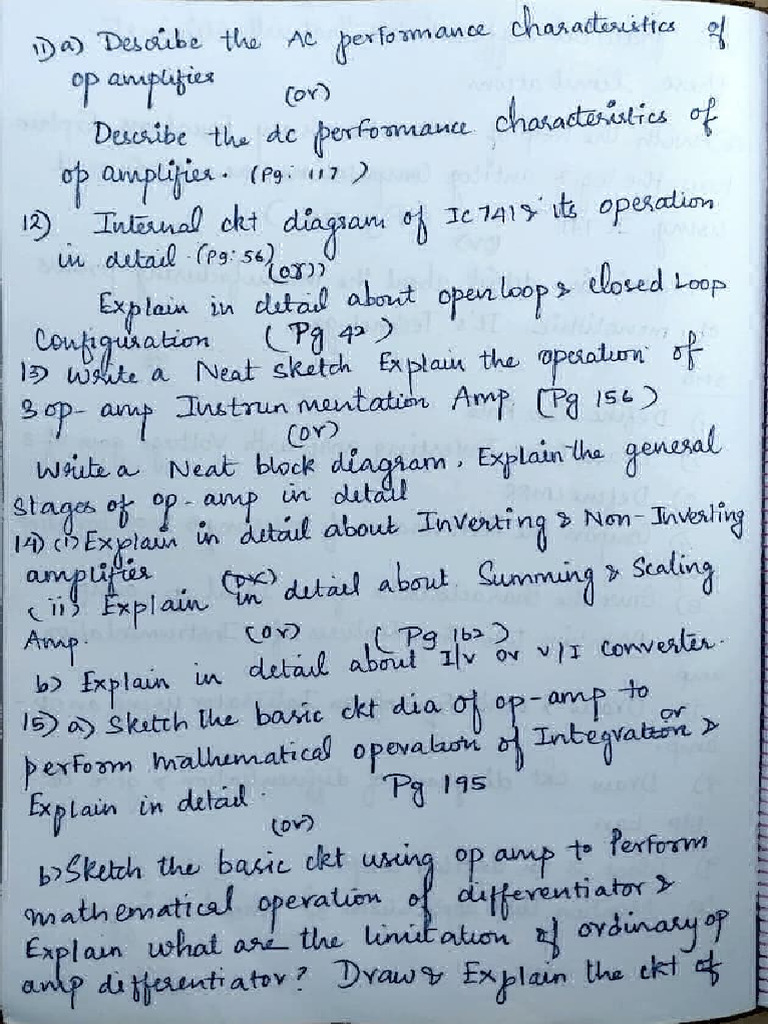 11) a) Describe the AC performance characteristics of
op amplifies
(or)
Describe the dc performance characteristics of
op amplifies. (Pg: 117)
12) Internal ckt diagram of IC 741 & its operation
in detail. (Pg: 56)
(or))
Explain in detail about open loop & closed Loop
Configuration (Pg 42)
13) Write a Neat sketch Explain the operation of
3 op-amp Instrun mentation Amp. (Pg 156)
(or)
Write a Neat block diagram, Explain the general
stages of op-amp in detail
14) (i) Explain in detail about Inverting & Non-Inverting
amplifies
(or)
(ii) Explain in detail about Summing & Scaling
Amp. (or) (Pg 162)
b) Explain in detail about I/v or v/I converter.
15) a) Sketch the basic ckt dia of op-amp to
perform mathematical operation of Integration or &
Explain in detail. Pg 195
(or)
b) Sketch the basic ckt using op amp to Perform
mathematical operation of differentiator &
Explain what are the limitation of ordinary op
amp differentiator? Draw & Explain the ckt of